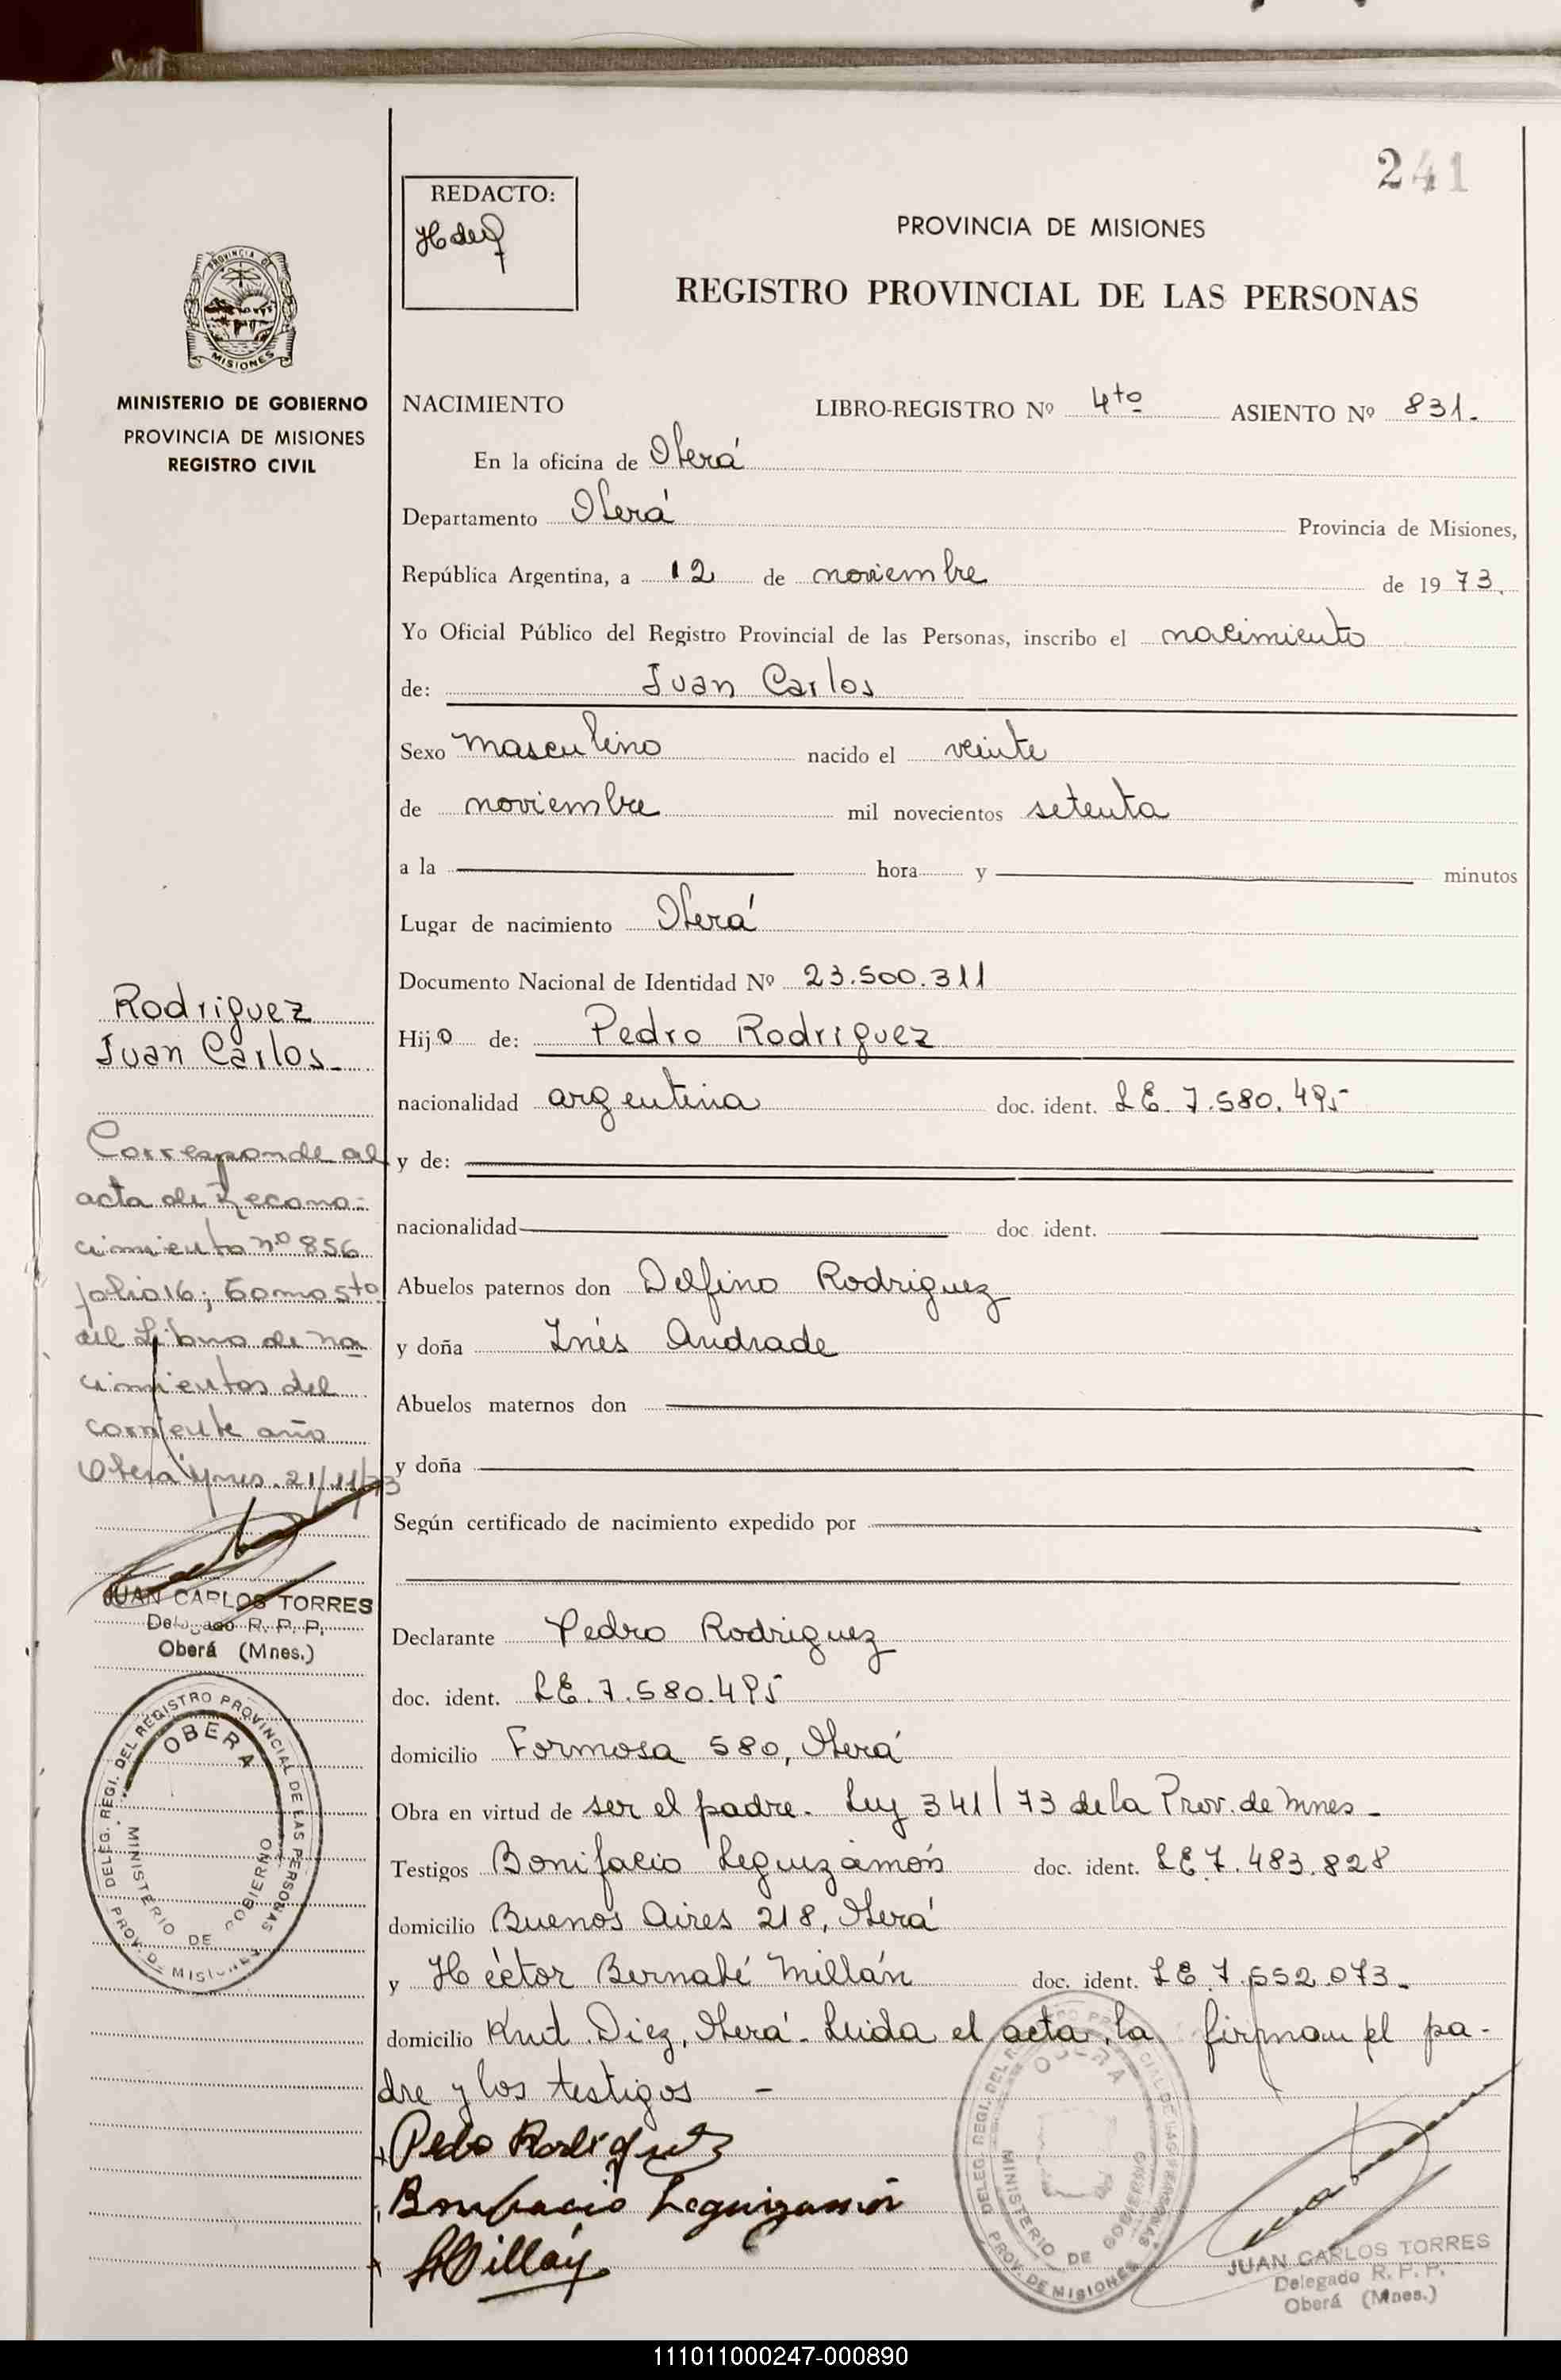 241
REDACTO:
PROVINCIA DE MISIONES
REGISTRO PROVINCIAL DE LAS PERSONAS
PROVINCIA DE
MISIONES
MINISTERIO DE GOBIERNO
PROVINCIA DE MISIONES
REGISTRO CIVIL
NACIMIENTO LIBRO-REGISTRO Nº 4to ASIENTO Nº 831.
En la oficina de Oberá
Departamento Oberá Provincia de Misiones,
República Argentina, a 12 de noviembre de 1973.
Yo Oficial Público del Registro Provincial de las Personas, inscribo el nacimiento
de: Juan Carlos
Sexo masculino nacido el veinte
de noviembre mil novecientos setenta
a la hora y minutos
Lugar de nacimiento Oberá
Documento Nacional de Identidad Nº 23.500.311
Hijo de: Pedro Rodriguez
nacionalidad argentina doc. ident. LE. 7.580.495
y de:
nacionalidad doc. ident.
Abuelos paternos don Delfino Rodriguez
y doña Inés Andrade
Abuelos maternos don
y doña
Según certificado de nacimiento expedido por
Declarante Pedro Rodriguez
doc. ident. LE. 7.580.495
domicilio Formosa 580, Oberá
Obra en virtud de ser el padre. Ley 341/73 de la Prov. de Mnes-
Testigos Bonifacio Leguizamón doc. ident. LE 7.483.828
domicilio Buenos Aires 218, Oberá
y Héctor Bernabé Millán doc. ident. LE 7.552.073-
domicilio Knd. Diez, Oberá- Leida el acta, la firman el pa-
dre y los testigos -
Pedro Rodriguez
Bonifacio Leguizamón
HMillán
JUAN CARLOS TORRES
Delegado R. P. P.
Oberá (Mnes.)
DELEG. REGI. DEL REGISTRO PROVINCIAL DE LAS PERSONAS
OBERA
MINISTERIO DE GOBIERNO
PROV. DE MISIONES
Rodriguez
Juan Carlos-
Corresponde al
acta de Recono-
cimiento nº 856
folio 16; tomo 5to
del Libro de na
cimientos del
corriente año
Oberá Mnes. 21/11/73
JUAN CARLOS TORRES
Delegado R. P. P.
Oberá (Mnes.)
DELEG. REGI. DEL REGISTRO PROVINCIAL DE LAS PERSONAS
OBERA
MINISTERIO DE GOBIERNO
PROV. DE MISIONES
111011000247-000890